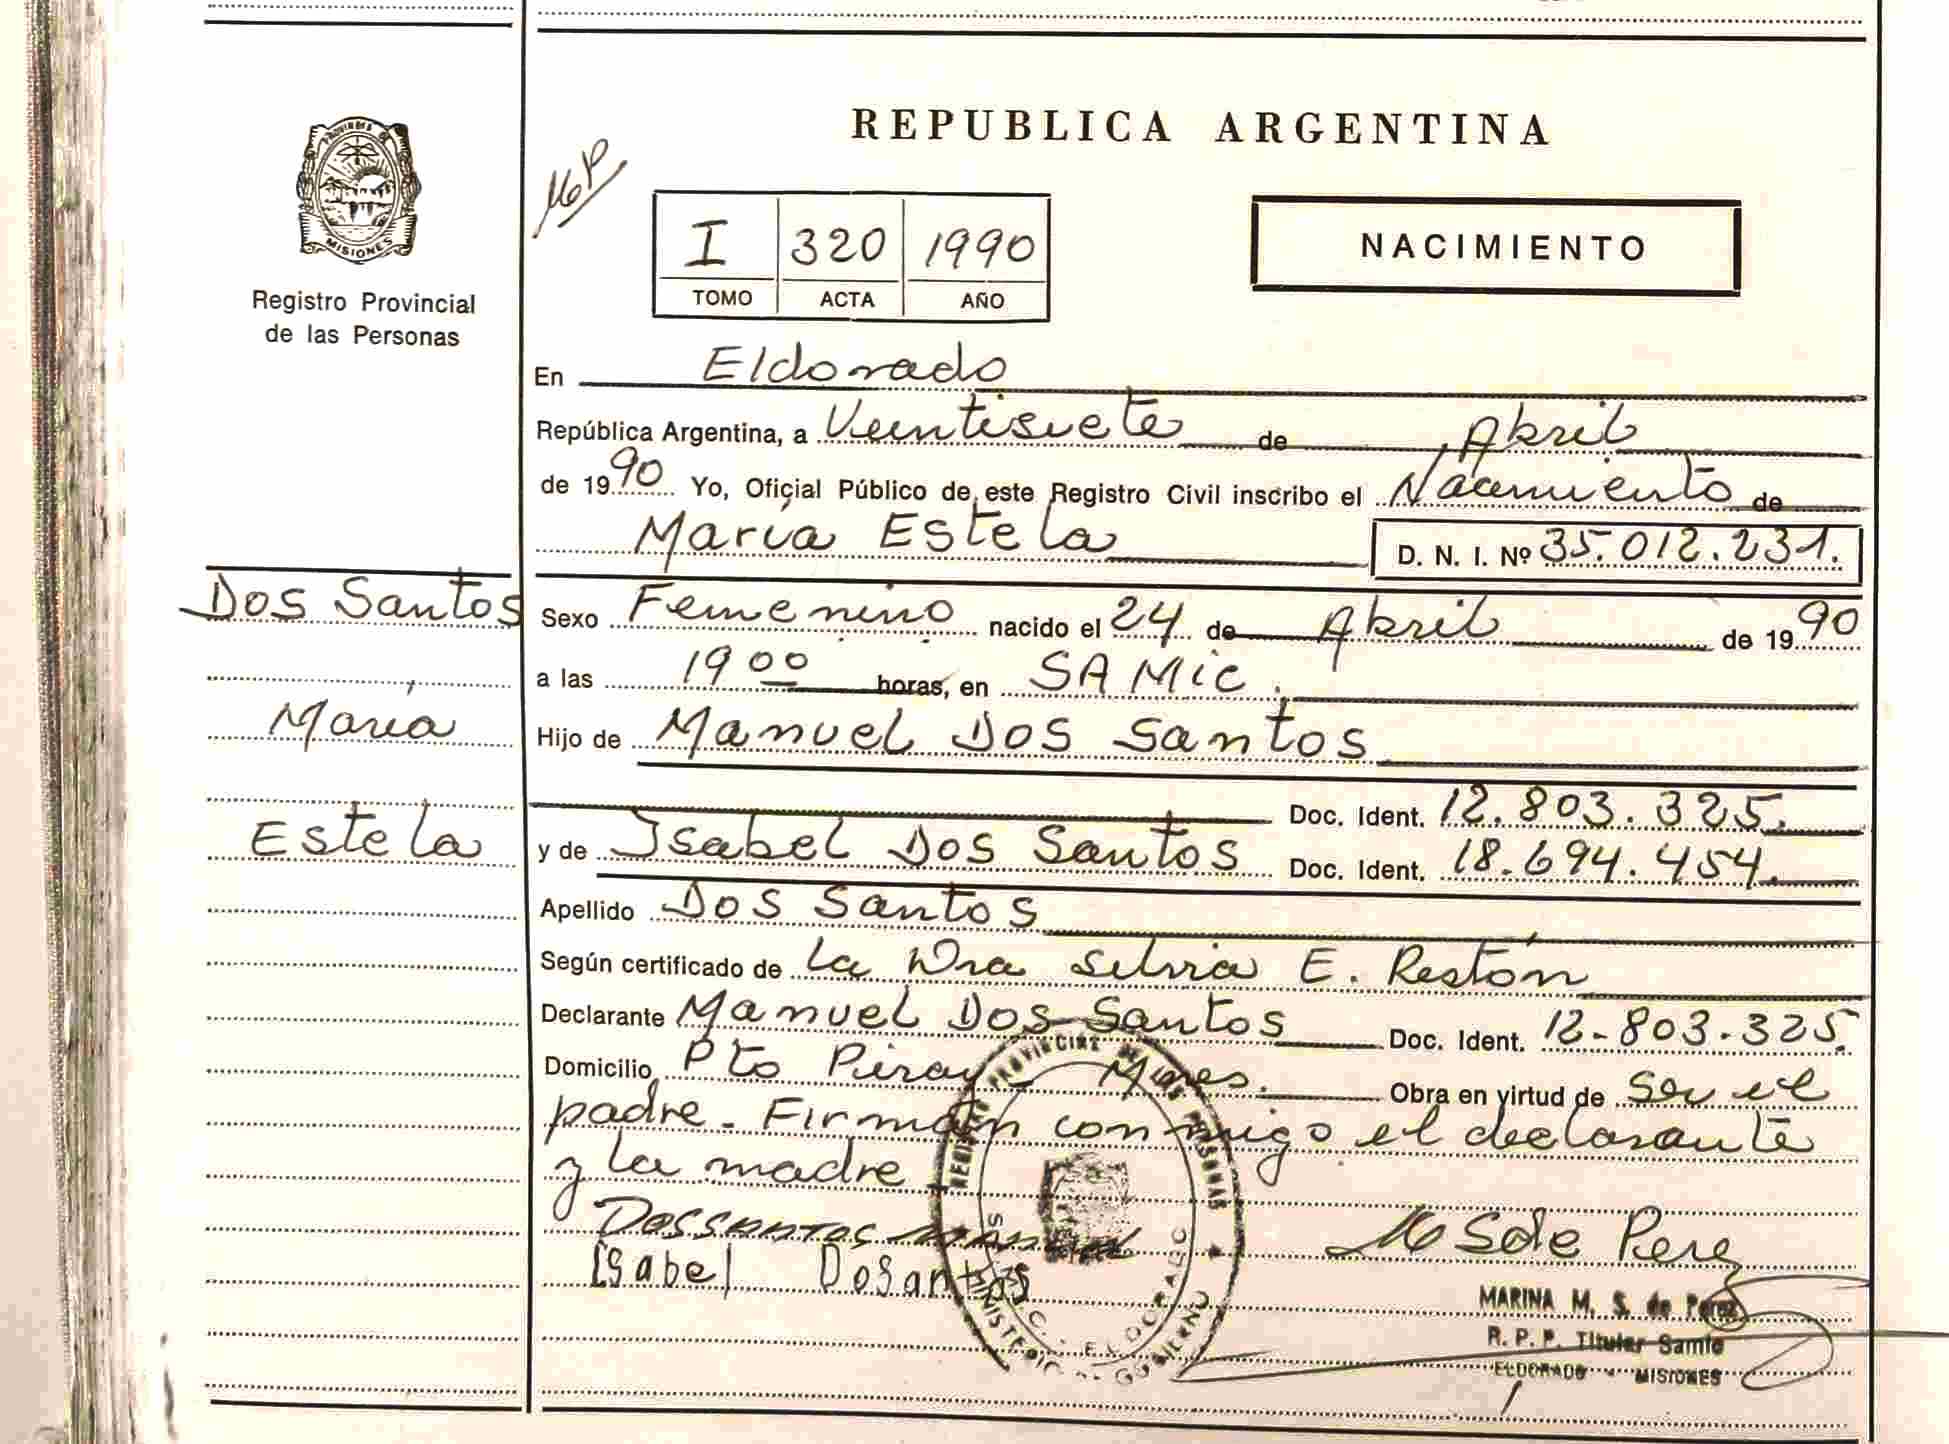 REPUBLICA ARGENTINA
PROVINCIA DE
MISIONES
Registro Provincial
de las Personas
I 320 1990
TOMO ACTA AÑO
NACIMIENTO
En Eldorado
República Argentina, a Veintisiete de Abril
de 1990 Yo, Oficial Público de este Registro Civil inscribo el Nacimiento de
María Estela D. N. I. Nº 35.012.231.
Dos Santos
María
Estela
Sexo Femenino nacido el 24 de Abril de 1990
a las 19 00 horas, en SAMIC.
Hijo de Manuel Dos Santos
Doc. Ident. 12.803.325.
y de Isabel Dos Santos Doc. Ident. 18.694.454.
Apellido Dos Santos
Según certificado de La Dra Silvia E. Restón
Declarante Manuel Dos Santos Doc. Ident. 12-803-325.
Domicilio Pto Piray - Mnes. Obra en virtud de ser el
padre. Firman conmigo el declarante
y la madre
Dossantos Manuel
Isabel Dosantos
M S de Perez
MARINA M. S. de Perez
R. P. P. Titular Samic
ELDORADO - MISIONES
REGISTRO PROVINCIAL DE LAS PERSONAS
ELDORADO
MINISTERIO DE GOBIERNO